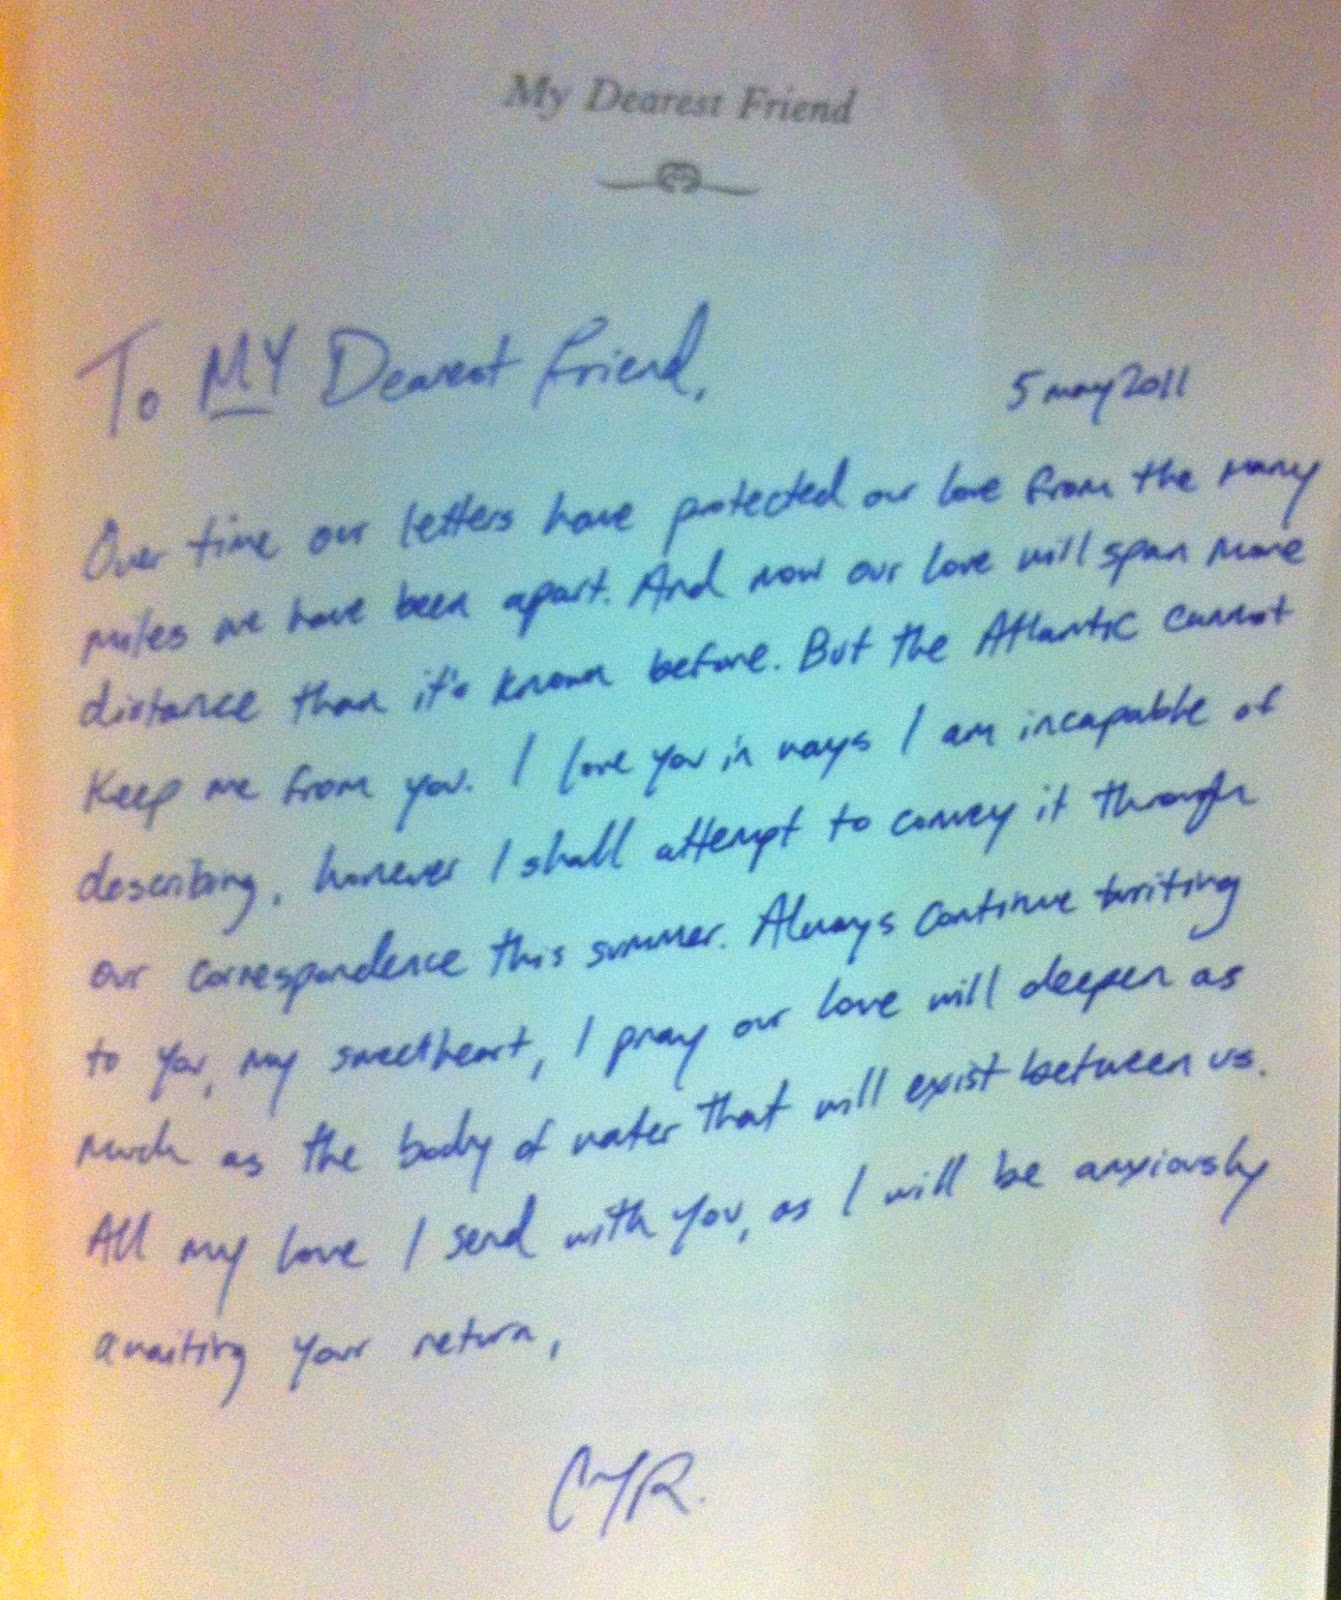 My Dearest Friend
To MY Dearest Friend,
5 may 2011
Over time our letters have protected our love from the many
miles we have been apart. And now our love will span more
distance than it's known before. But the Atlantic cannot
keep me from you. I love you in ways I am incapable of
describing, however I shall attempt to convey it through
our correspondence this summer. Always continue writing
to you, my sweetheart, I pray our love will deepen as
much as the body of water that will exist between us.
All my love I send with you, as I will be anxiously
awaiting your return,
CYR.